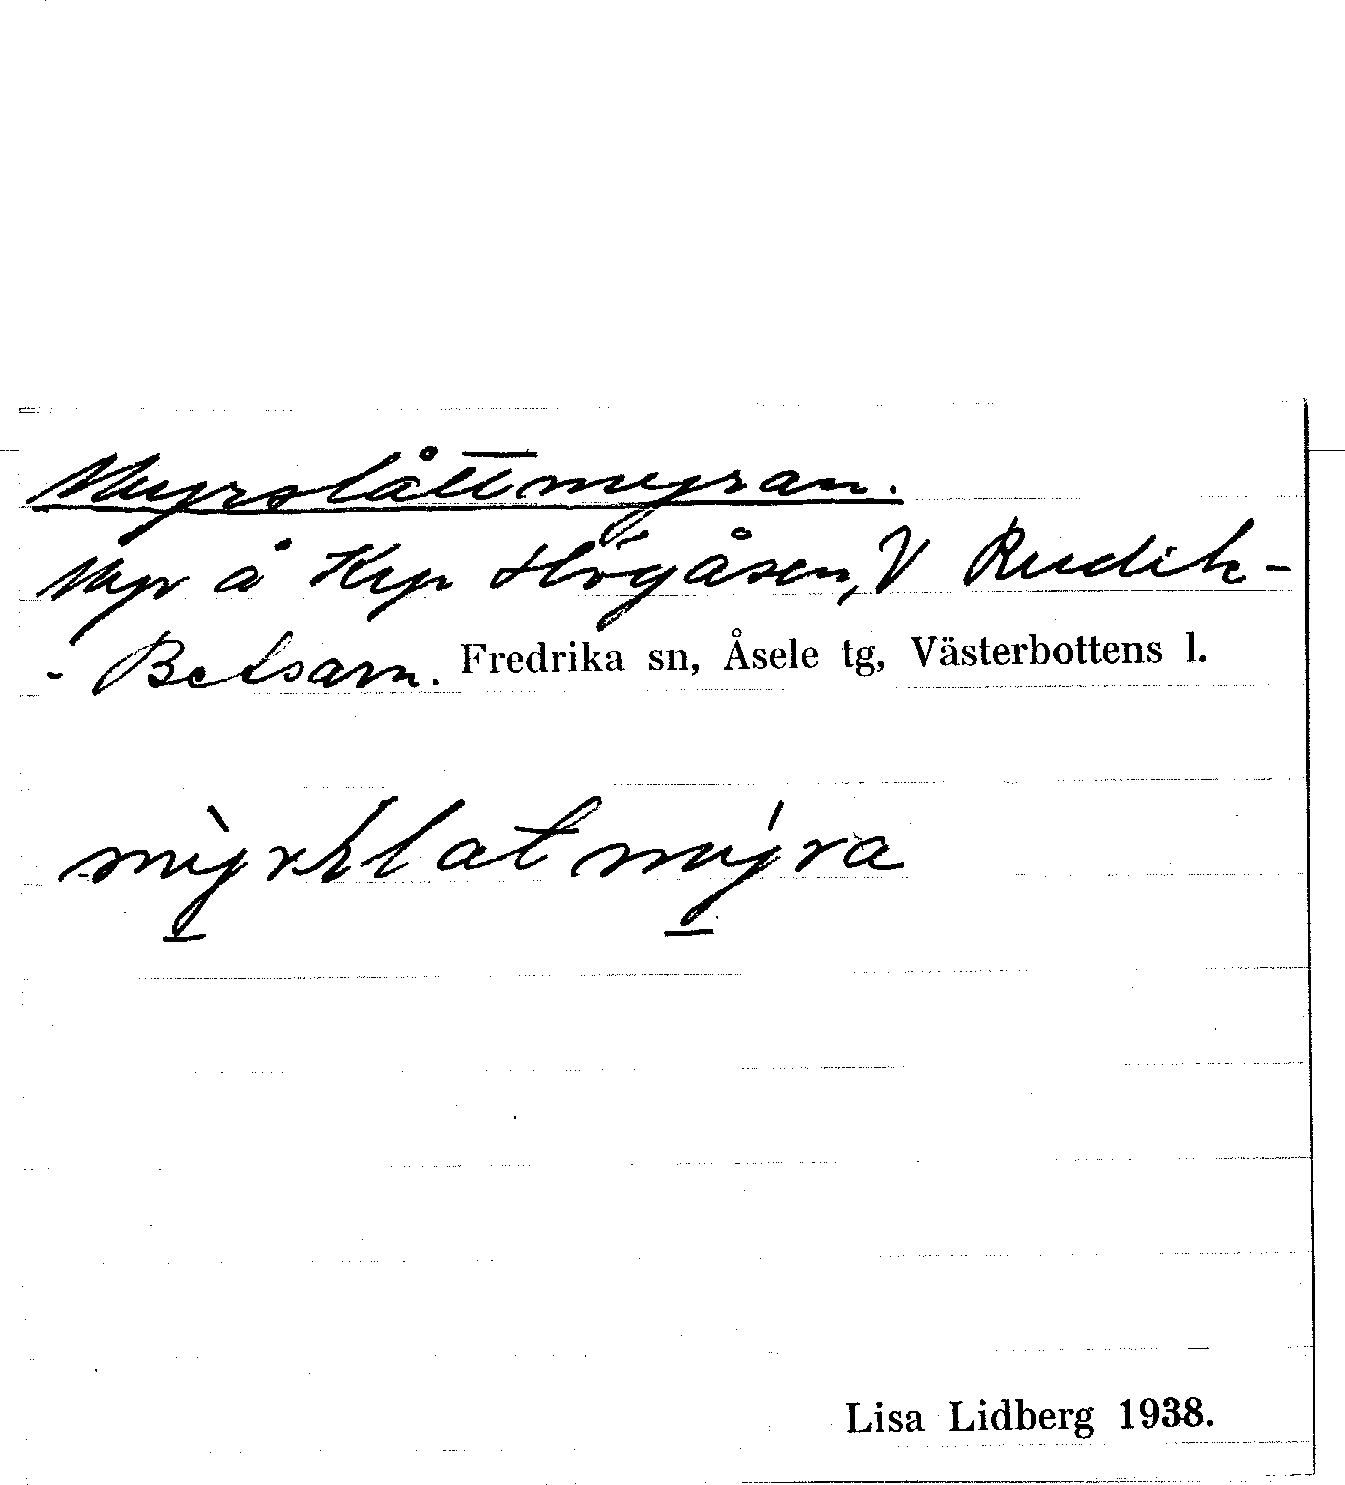 Myrslåttmyran.
Myr å Krp Högåsen, V Rudih-
- Betsarn. Fredrika sn, Åsele tg, Västerbottens l.
mỳrslatmýra
Lisa Lidberg 1938.